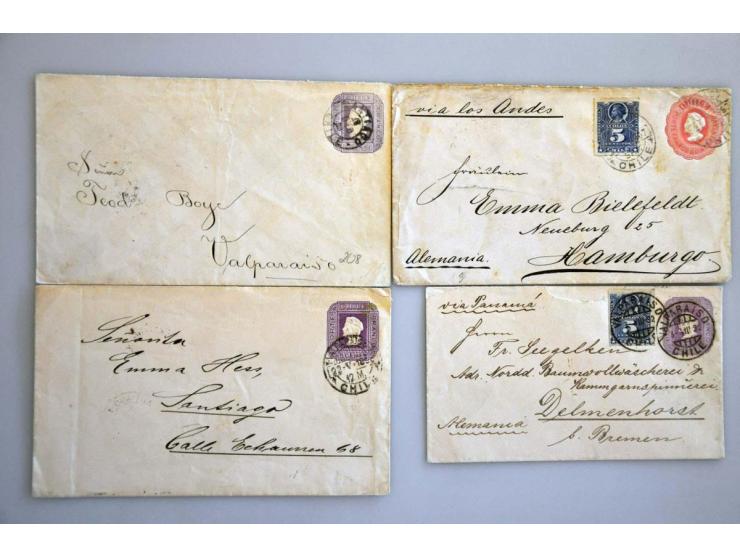 Teod. Boye
Valparaiso
208
via los Andes
COLON
5
CHILE
Fräulein
Emma Bielefeldt
Neueburg 25
Alemania.
Hamburgo
Señorita
Emma Hess,
Santiago
Calle
68
CHILE
via Panamá
5
VALPARAISO
VALPARAISO
CHILE
Herrn
Fr. Seegelken
Adr. Nordd. Baumwollwäscherei &
Kammgarnspinnerei
Delmenhorst
Alemania
b. Bremen